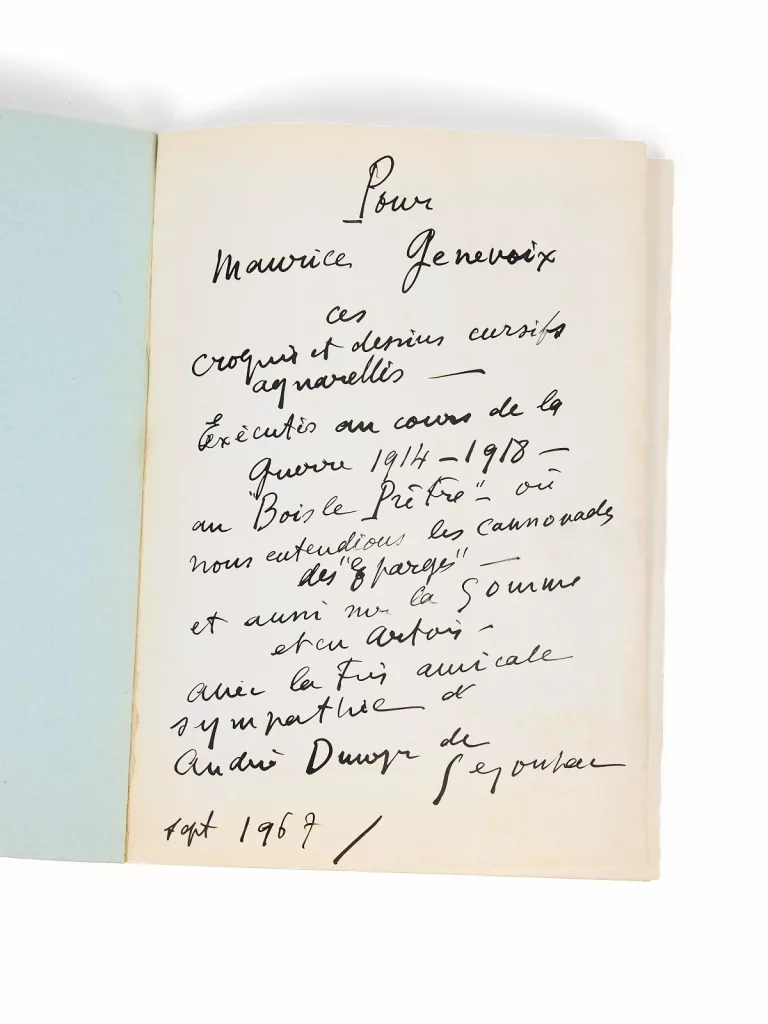 Pour
Maurice Genevoix
ces
croquis et dessins cursifs
aquarellés —
Exécutés au cours de la
guerre 1914 – 1918 –
au "Bois le Prêtre" – où
nous entendions les cannonades
des "Eparges" —
et aussi sur la Somme
et en Artois –
avec la très amicale
sympathie d'
André Dunoyer de
Segonzac
sept 1967 /